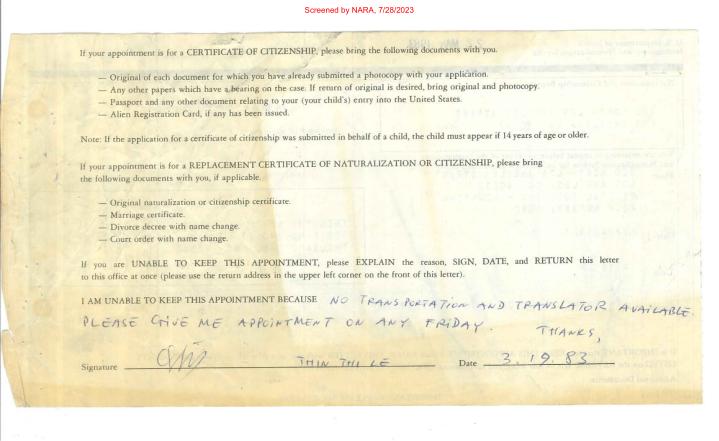 Screened by NARA, 7/28/2023
If your appointment is for a CERTIFICATE OF CITIZENSHIP, please bring the following documents with you.
— Original of each document for which you have already submitted a photocopy with your application.
— Any other papers which have a bearing on the case. If return of original is desired, bring original and photocopy.
— Passport and any other document relating to your (your child's) entry into the United States.
— Alien Registration Card, if any has been issued.
Note: If the application for a certificate of citizenship was submitted in behalf of a child, the child must appear if 14 years of age or older.
If your appointment is for a REPLACEMENT CERTIFICATE OF NATURALIZATION OR CITIZENSHIP, please bring
the following documents with you, if applicable.
— Original naturalization or citizenship certificate.
— Marriage certificate.
— Divorce decree with name change.
— Court order with name change.
If you are UNABLE TO KEEP THIS APPOINTMENT, please EXPLAIN the reason, SIGN, DATE, and RETURN this letter
to this office at once (please use the return address in the upper left corner on the front of this letter).
I AM UNABLE TO KEEP THIS APPOINTMENT BECAUSE NO TRANSPORTATION AND TRANSLATOR AVAILABLE.
PLEASE GIVE ME APPOINTMENT ON ANY FRIDAY. THANKS,
Signature THIN THI LE Date 3.19.83